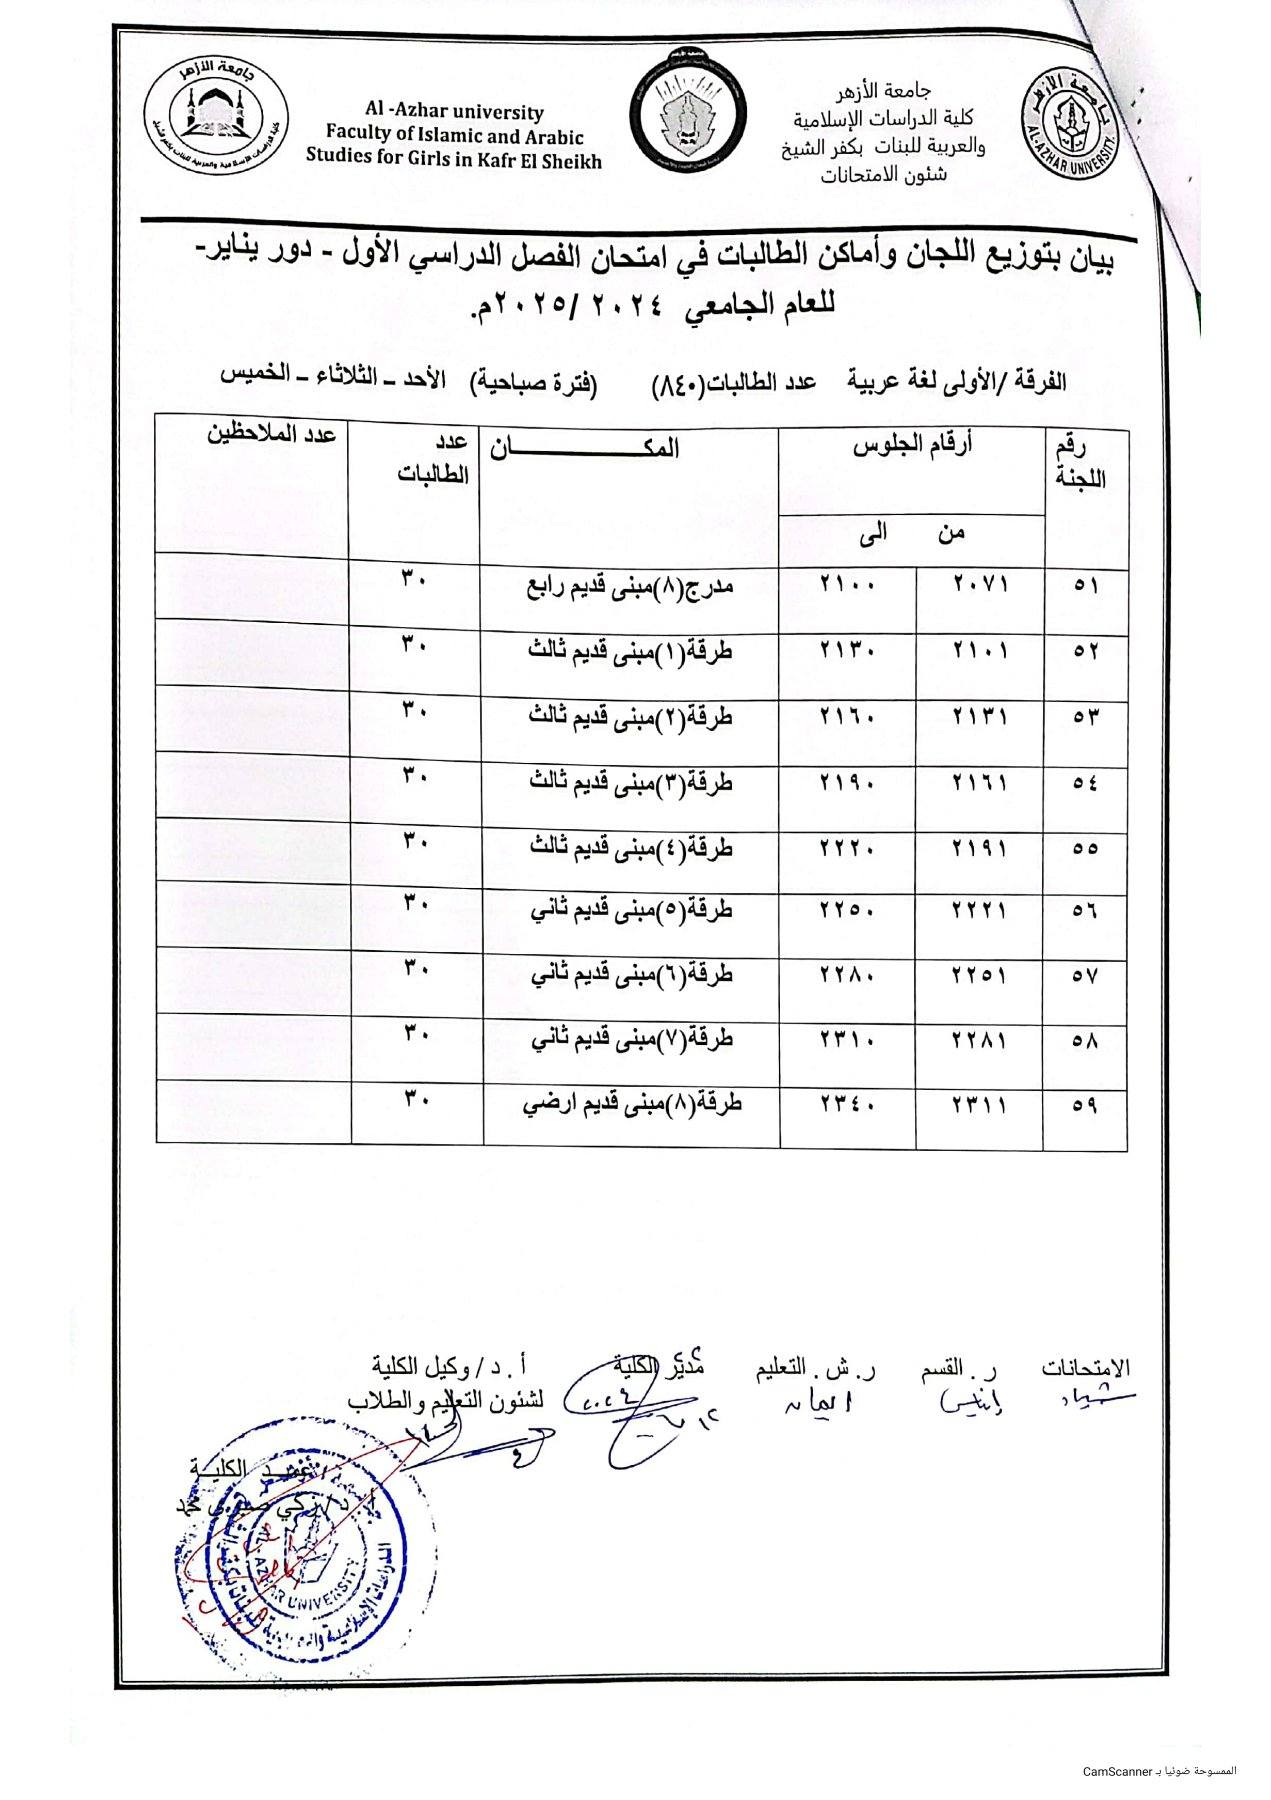 جامعة الأزهر
كلية الدراسات الإسلامية
والعربية للبنات بكفر الشيخ
شئون الامتحانات
Al -Azhar university
Faculty of Islamic and Arabic
Studies for Girls in Kafr El Sheikh
جامعة الأزهر
AL-AZHAR UNIVERSITY
جامعة الأزهر
بيان بتوزيع اللجان وأماكن الطالبات في امتحان الفصل الدراسي الأول - دور يناير-
للعام الجامعي ٢٠٢٤ /٢٠٢٥م.
الفرقة /الأولى لغة عربية عدد الطالبات(٨٤٠) (فترة صباحية) الأحد – الثلاثاء – الخميس
رقم اللجنة أرقام الجلوس المكــــــــــــان عدد الطالبات عدد الملاحظين
من الى
٥١ ٢٠٧١ ٢١٠٠ مدرج(٨)مبنى قديم رابع ٣٠
٥٢ ٢١٠١ ٢١٣٠ طرقة(١)مبنى قديم ثالث ٣٠
٥٣ ٢١٣١ ٢١٦٠ طرقة(٢)مبنى قديم ثالث ٣٠
٥٤ ٢١٦١ ٢١٩٠ طرقة(٣)مبنى قديم ثالث ٣٠
٥٥ ٢١٩١ ٢٢٢٠ طرقة(٤)مبنى قديم ثالث ٣٠
٥٦ ٢٢٢١ ٢٢٥٠ طرقة(٥)مبنى قديم ثاني ٣٠
٥٧ ٢٢٥١ ٢٢٨٠ طرقة(٦)مبنى قديم ثاني ٣٠
٥٨ ٢٢٨١ ٢٣١٠ طرقة(٧)مبنى قديم ثاني ٣٠
٥٩ ٢٣١١ ٢٣٤٠ طرقة(٨)مبنى قديم ارضي ٣٠
الامتحانات ر . القسم ر . ش . التعليم مدير الكلية أ . د / وكيل الكلية
لشئون التعليم والطلاب
شيماء إيناس ايمان
الكلية
أ . د / زكي صبري محمد
AZHAR UNIVERSITY
الممسوحة ضوئيا بـ CamScanner